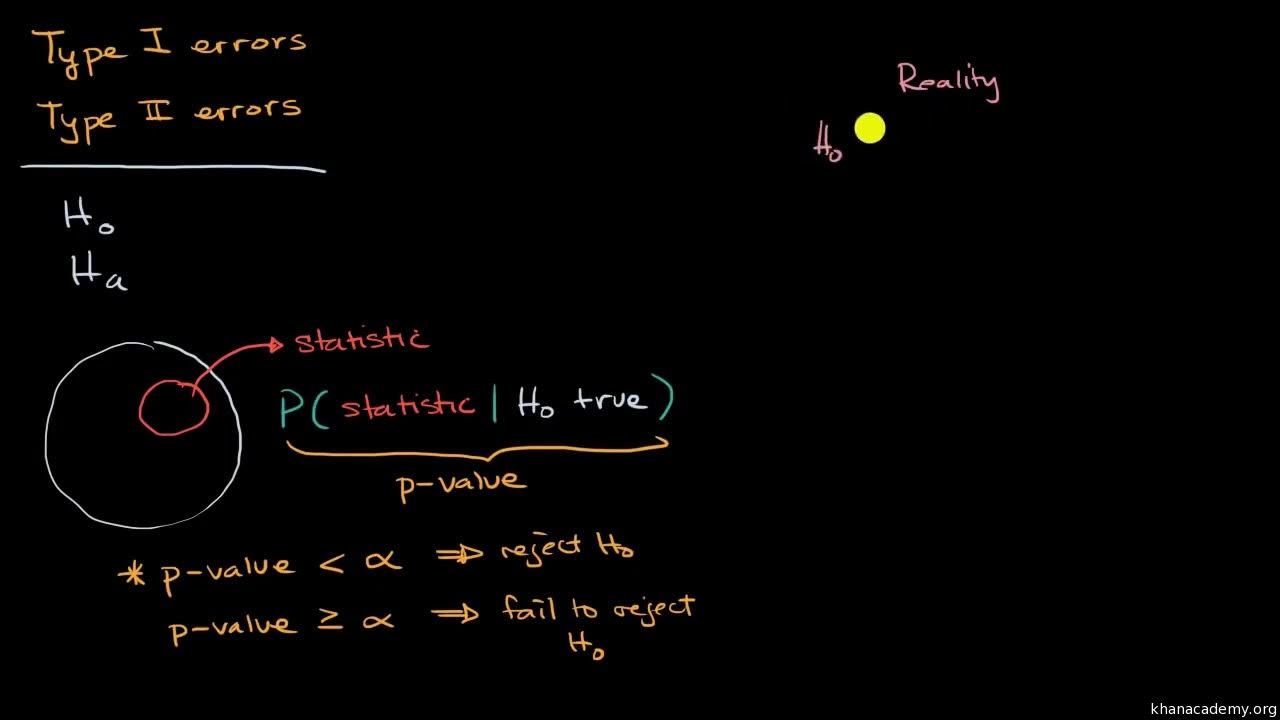 Type I errors
Type II errors
H₀
Hₐ
statistic
P( statistic | H₀ true )
p-value
* p-value < α ⇒ reject H₀
p-value ≥ α ⇒ fail to reject
H₀
Reality
H₀
khanacademy.org